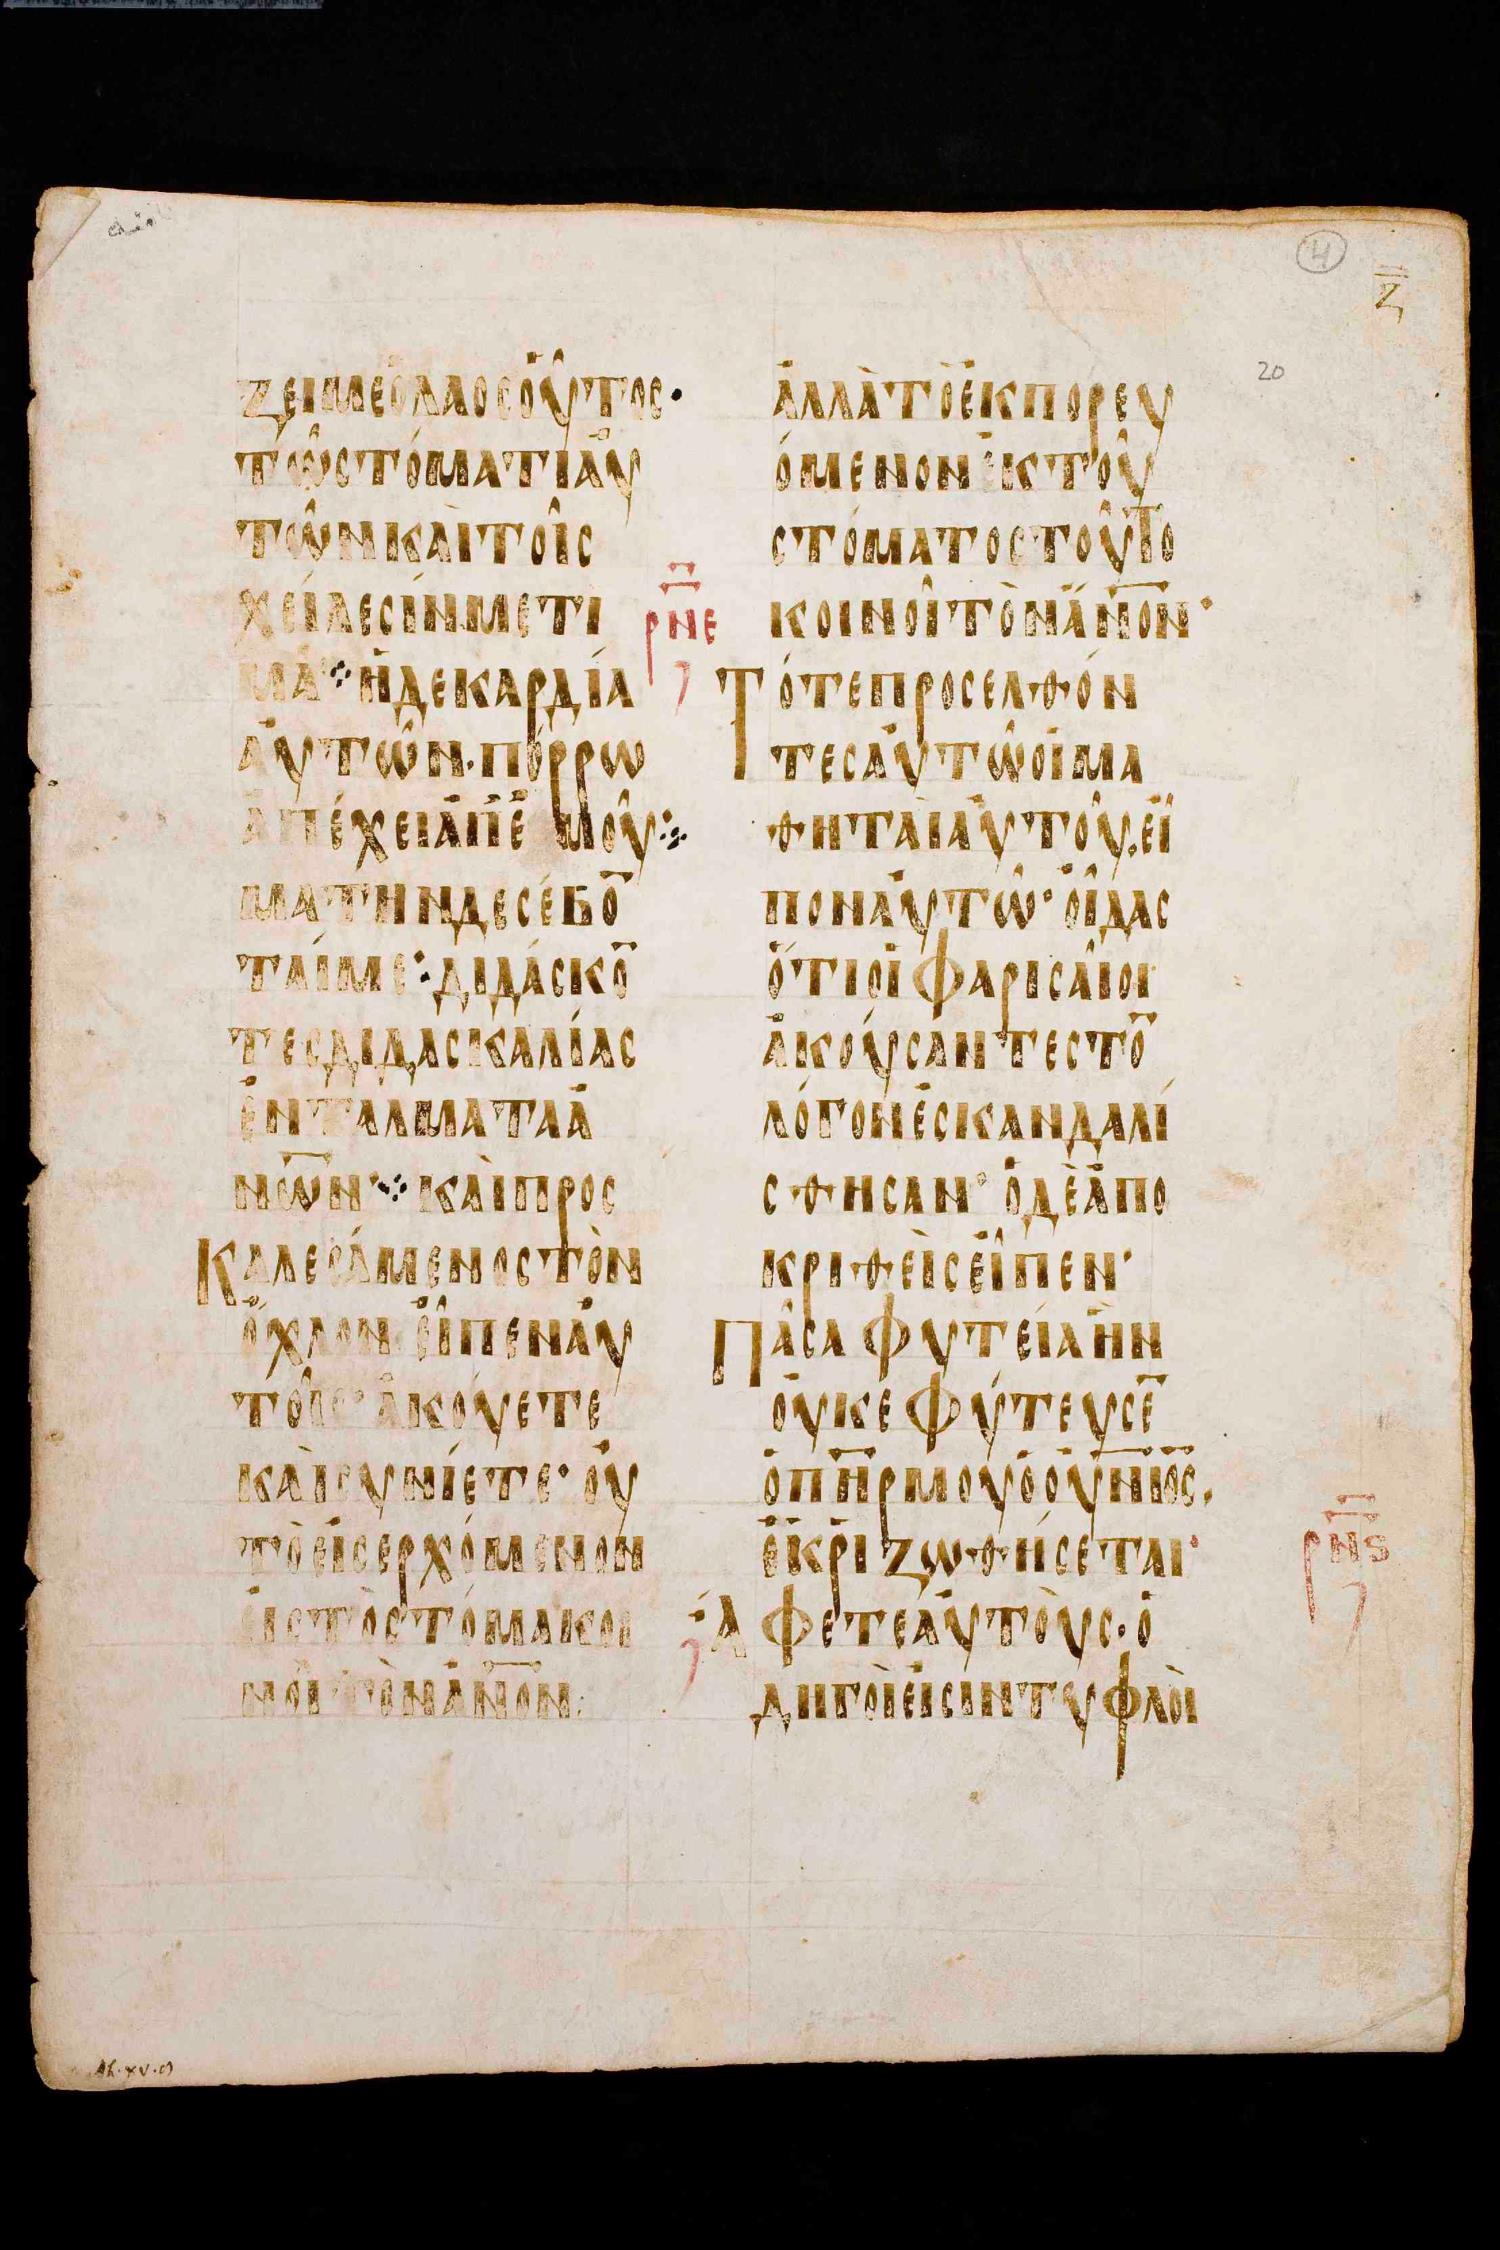 4
Ζ
20
ΖΕΙΜΕὉΛΑΟΣΟὟΤΟΣ·
ΤῶΣΤΌΜΑΤΙἈΥ
ΤῶΝΚΑῚΤΟῖΣ
ΧΕΊΛΕΣΊΝΜΕΤΙ
ΜΑ῀ἩΔΕΚΑΡΔΊΑ
ἈΥΤῶΝ·ΠΌΡΡΩ
ἈΠΈΧΕΙἈΠἘ ΜΟῦ
ΜΑΤΗΝΔΕΣΈΒΟ̅
ΤΑΊΜΕ:ΔΙΔΆΣΚΟ̅
ΤΕΣΔΙΔΑΣΚΑΛΊΑΣ
ἘΝΤΑΛΜΑΤΑἈ
Ν̅Ω̅Ν·ΚΑῚΠΡΟΣ
ΚΑΛΕΣΆΜΕΝΟΣΤῸΝ
ὌΧΛΟΝἘῖΠΕΝἈΥ
ΤΟῖΣ·ἈΚΟΎΕΤΕ
ΚΑῚΣΥΝΊΕΤΕ·ὀΥ
ΤῸἘΙΣΕΡΧΌΜΕΝΟΝ
ἘΙΣΤῸΣΤΌΜΑΚΟΙ
ΝΟῖΤῸΝἈΝ̅Ο̅Ν:
ΡΝΕ
ΑΛΛᾺΤῸἘΚΠΟΡΕΥ
ΌΜΕΝΟΝἘΚΤΟῦ
ΣΤΌΜΑΤΟΣΤΟῦΤΟ
ΚΟΙΝΟῖΤῸΝἈΝ̅Ο̅Ν·
ΤΌΤΕΠΡΟΣΕΛΘΌΝ
ΤΕΣἈΥΤῶΟἹΜΑ
ΘΗΤΑῚἈΥΤΟῦ.ΕἸ
ΠΟΝἈΥΤῶ·ὈῖΔΑΣ
ὍΤΙΟἹΦΑΡΙΣΑῖΟΙ
ἈΚΟΎΣΑΝΤΕΣΤΟ̅
ΛΌΓΟΝἘΣΚΑΝΔΑΛΊ
ΣΘΗΣΑΝ·ὉΔῈἈΠΟ
ΚΡΙΘΕῚΣἘῖΠΕΝ·
ΠᾶΣΑΦΥΤΕΊΑἫΝ
ὀΥΚΕΦΎΤΕΥΣΕ̅
ὉΠΗ̅ΡΜΟΥὉὀΥ̅Ν̅Ι̅Ο̅Σ.
ἘΚΡΙΖΩΘΉΣΕΤΑΙ·
ΡΝϚ
ἌΦΕΤΕἈΥΤΟῪΣ·Ὁ
ΔΗΓΟΊἘΙΣΙΝΤΥΦΛΟῚ